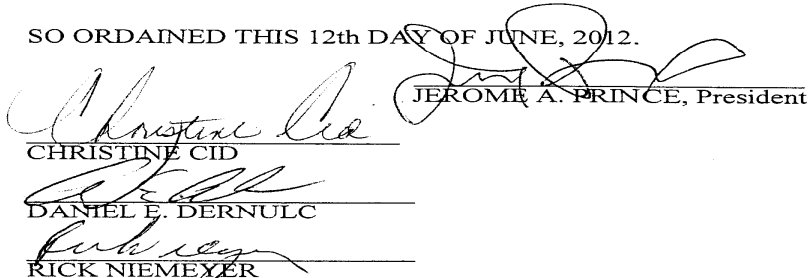 SO ORDAINED THIS 12th DAY OF JUNE, 2012.
JEROME A. PRINCE, President
Christine Cid
CHRISTINE CID
DANIEL E. DERNULC
RICK NIEMEYER